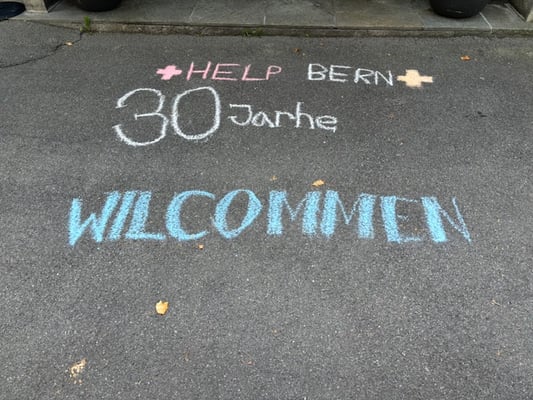 HELP BERN
30 Jarhe
WILCOMMEN